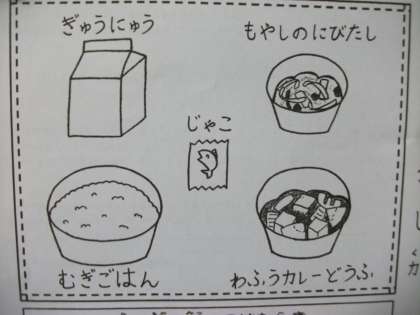 ぎゅうにゅう
もやしのにびたし
じゃこ
むぎごはん
わふうカレーどうふ